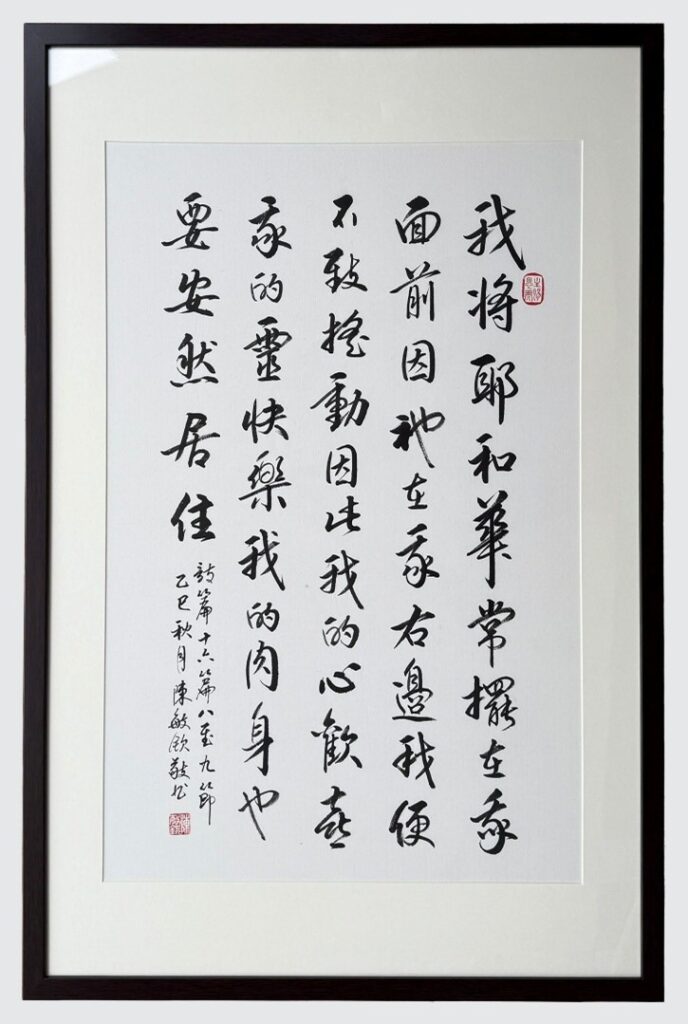 我將耶和華常擺在我
面前因祂在我右邊我便
不致搖動因此我的心歡喜
我的靈快樂我的肉身也
要安然居住
詩篇十六篇八至九節
乙巳秋月陳敏欽敬書